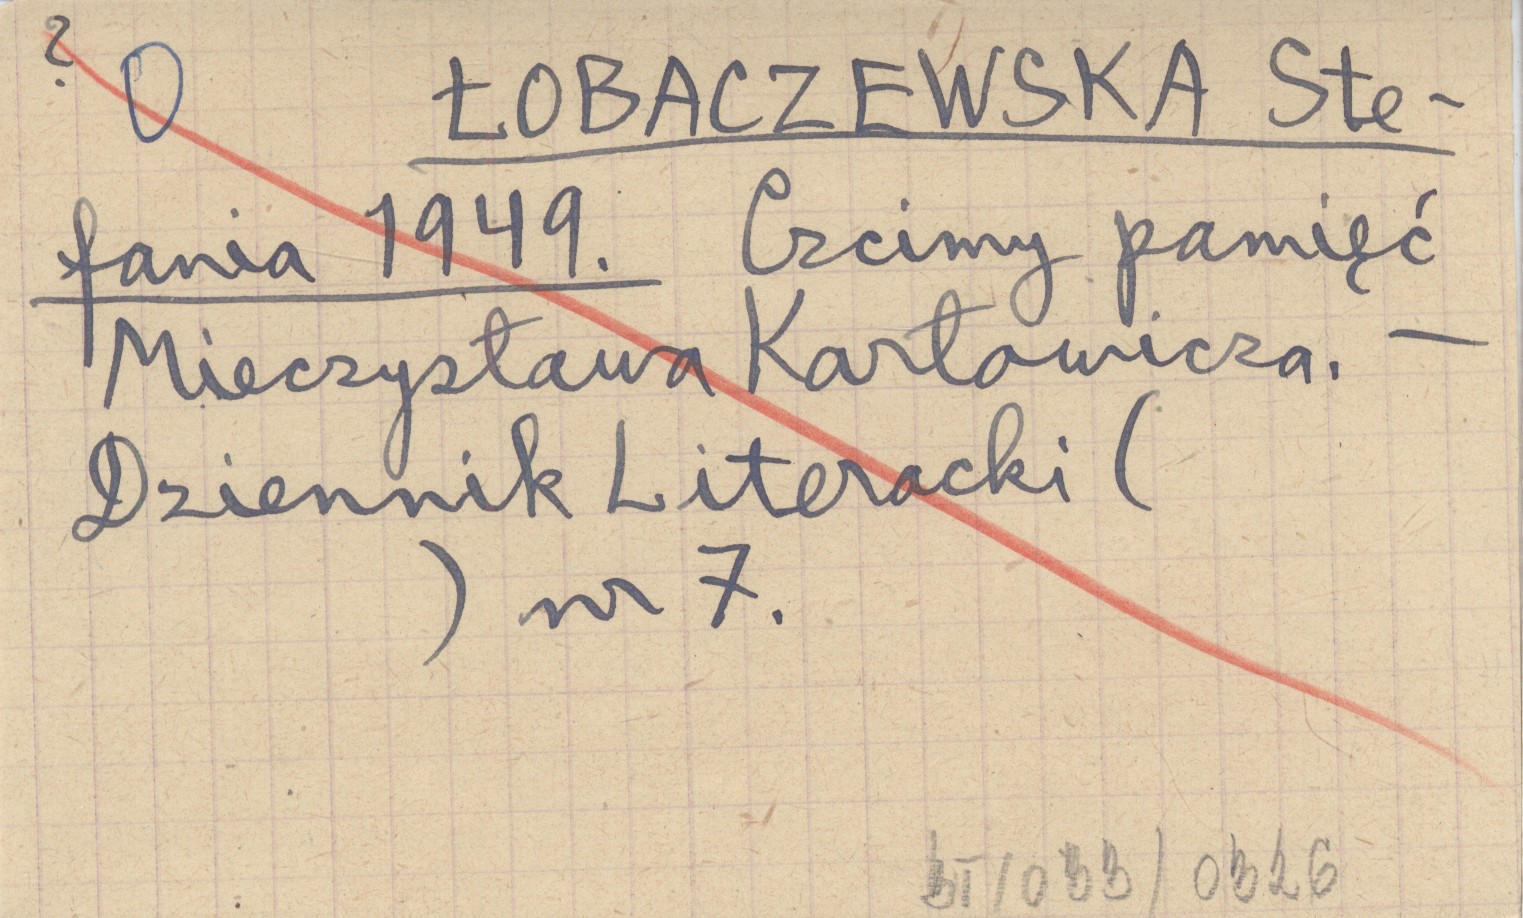 ? O ŁOBACZEWSKA Ste-
fania 1949. Czcimy pamięć
Mieczysława Karłowicza. —
Dziennik Literacki (
) nr 7.